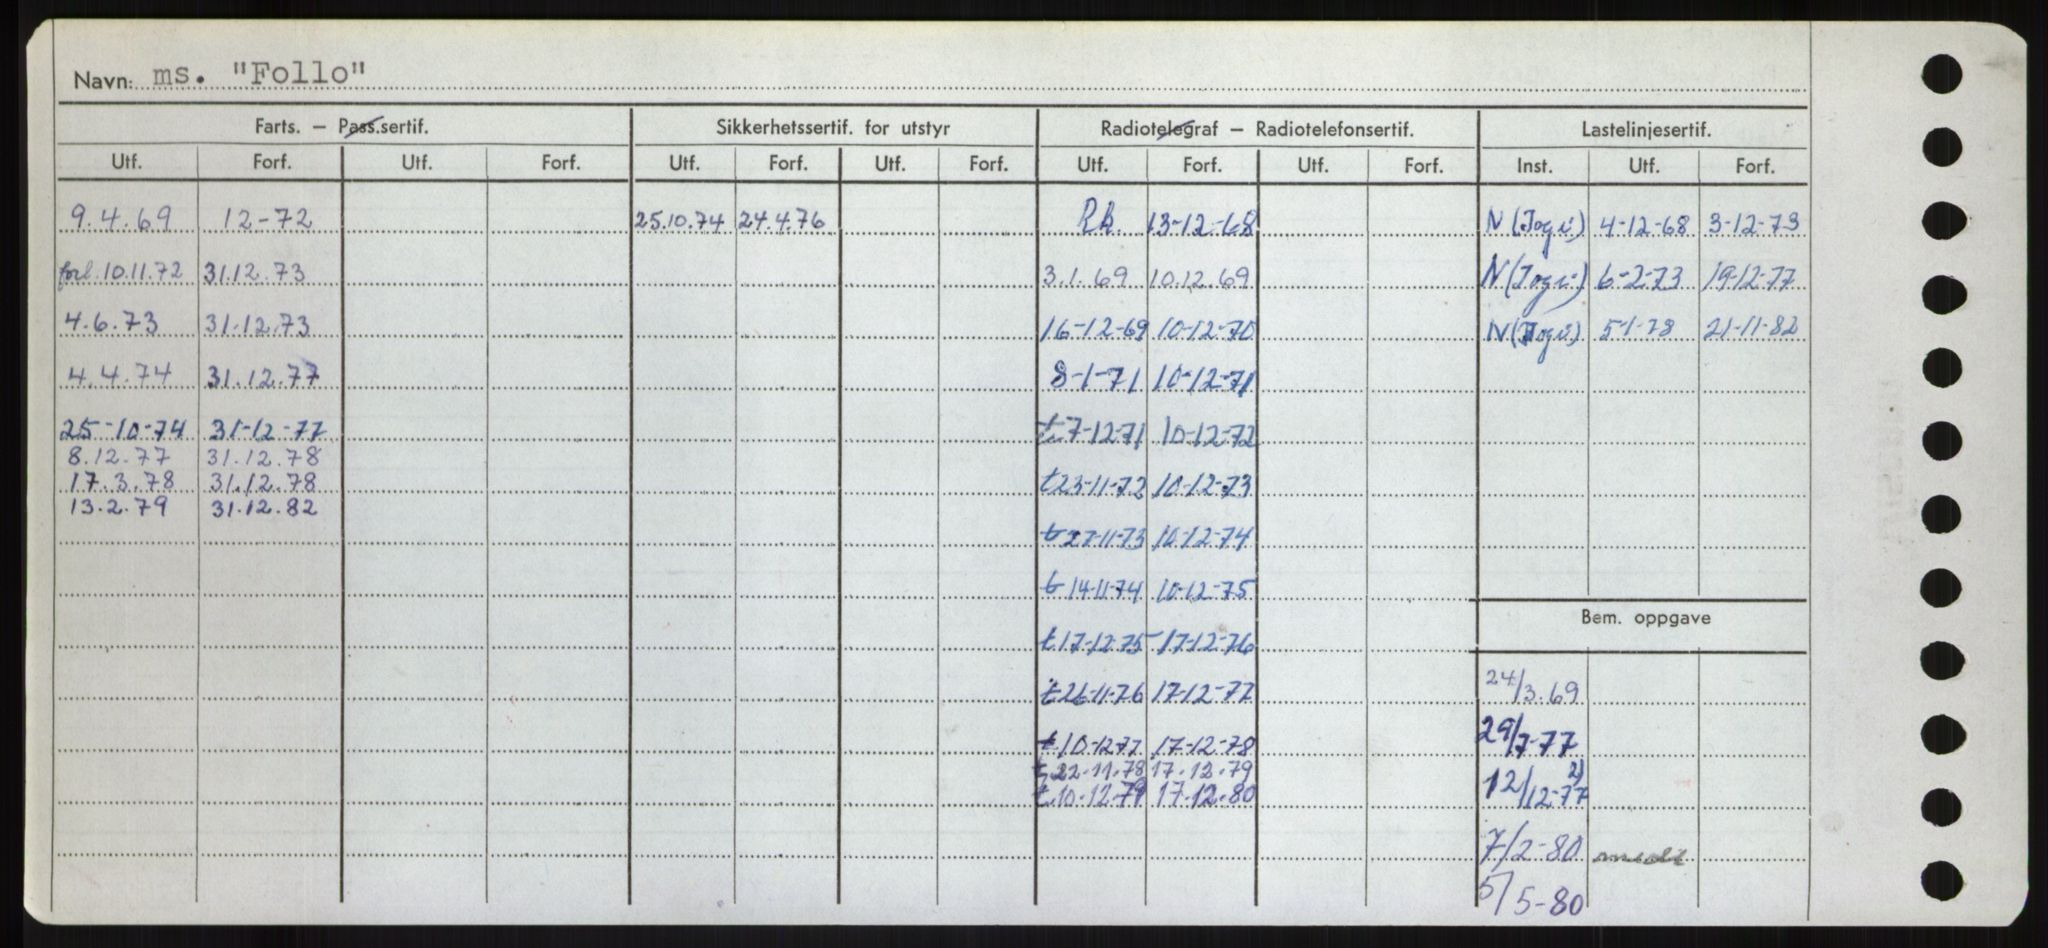 Navn: ms. "Follo"
Farts. – Pass.sertif. Sikkerhetssertif. for utstyr Radiotelegraf – Radiotelefonsertif. Lastelinjesertif.
Utf. Forf. Utf. Forf. Utf. Forf. Utf. Forf. Utf. Forf. Utf. Forf. Inst. Utf. Forf.
9.4.69 12-72 25.10.74 24.4.76 13-12-68 N 4-12-68 3-12-73
forl. 10.11.72 31.12.73 3.1.69 10.12.69 N 6-2-73 19-12-77
4.6.73 31.12.73 16-12-69 10-12-70 N 5-1-78 21-11-82
4.4.74 31.12.77 8-1-71 10-12-71
25-10-74 31-12-77 t 7-12-71 10-12-72
8.12.77 31.12.78
17.3.78 31.12.78 t 23-11-72 10-12-73
13.2.79 31.12.82
t 27-11-73 10-12-74
t 14-11-74 10-12-75
Bem. oppgave
t 17-12-75 17-12-76
t 26-11-76 17-12-77 24/3.69
t 10-12-77 17-12-78 29/7-77
t 22-11-78 17.12.79
t 10.12.79 17.12.80 12/12-77 2)
7/2-80
5/5-80